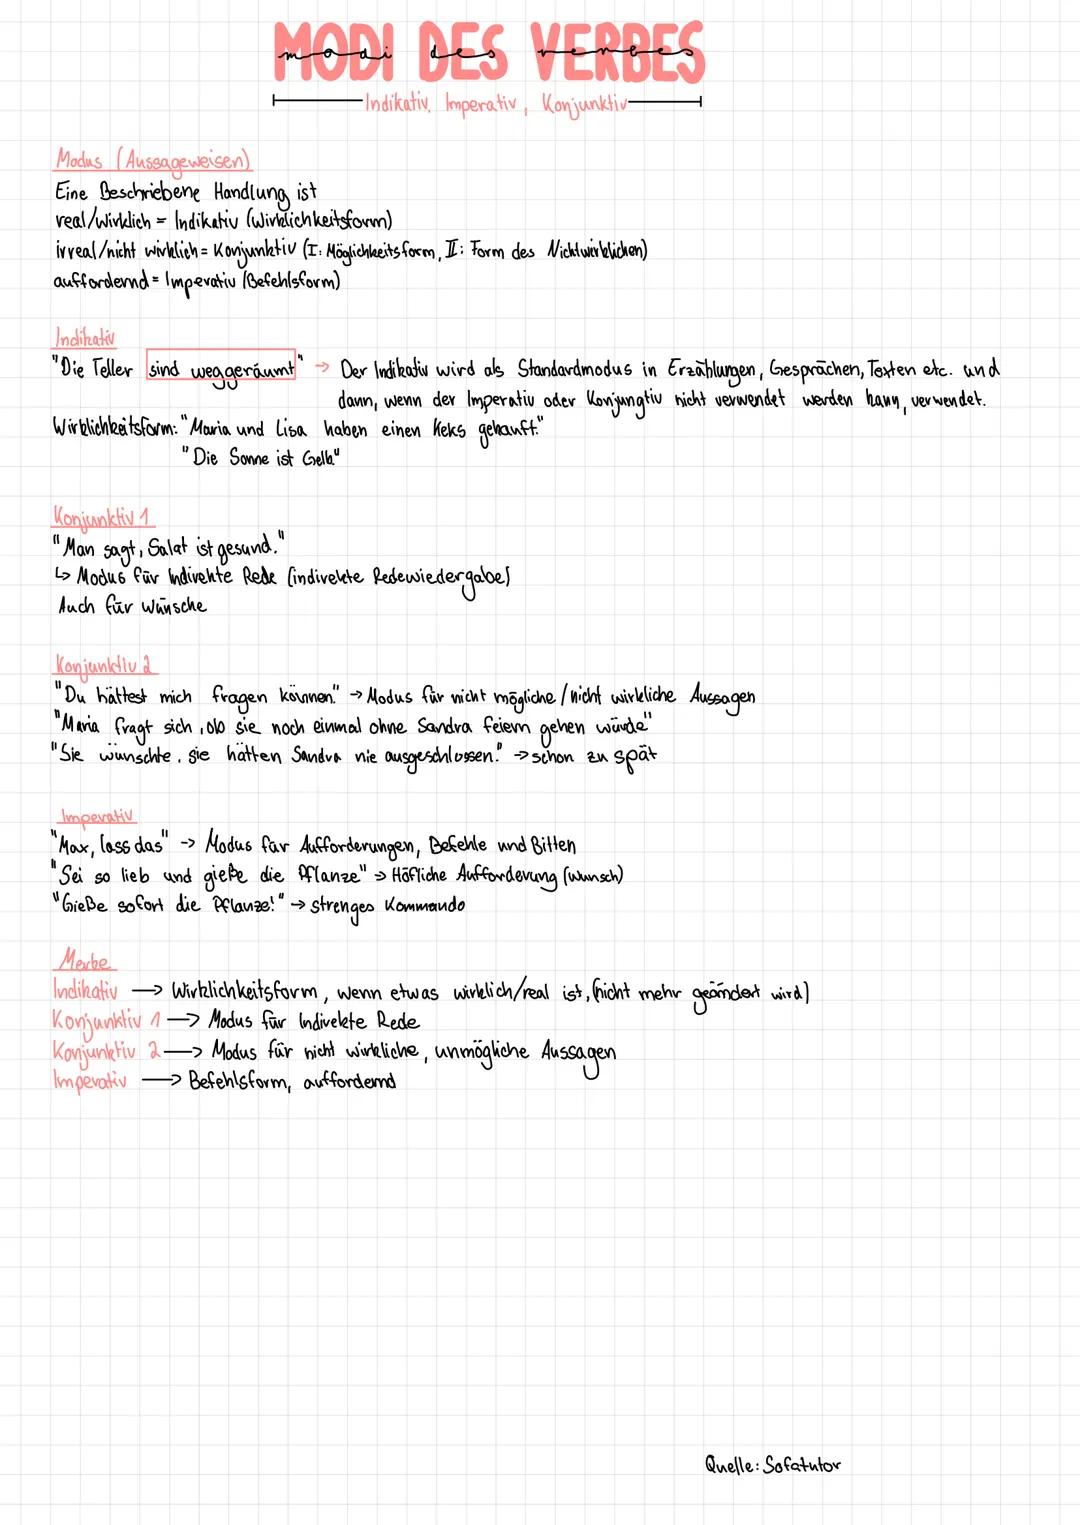 MODI DES VERBES
modi des verbes
Indikativ, Imperativ, Konjunktiv
Modus (Aussageweisen)
Eine Beschriebene Handlung ist
real/wirklich = Indikativ (Wirklichkeitsform)
irreal/nicht wirklich = Konjunktiv (I: Möglichkeitsform, II: Form des Nichtwirklichen)
auffordernd = Imperativ (Befehlsform)
Indikativ
"Die Teller sind weggeräumt" → Der Indikativ wird als Standardmodus in Erzählungen, Gesprächen, Texten etc. und
dann, wenn der Imperativ oder Konjungtiv nicht verwendet werden kann, verwendet.
Wirklichkeitsform: "Maria und Lisa haben einen Keks gekauft."
"Die Sonne ist Gelb."
Konjunktiv 1
"Man sagt, Salat ist gesund."
↳ Modus für Indirekte Rede (indirekte Redewiedergabe)
Auch für Wünsche
Konjunktiv 2
"Du hättest mich fragen können." → Modus für nicht mögliche / nicht wirkliche Aussagen
"Maria fragt sich, ob sie noch einmal ohne Sandra feiern gehen würde"
"Sie wünschte, sie hätten Sandra nie ausgeschlossen." → schon zu spät
Imperativ
"Max, lass das" -> Modus für Aufforderungen, Befehle und Bitten
"Sei so lieb und gieße die Pflanze" → Höfliche Aufforderung (Wunsch)
"Gieße sofort die Pflanze!" → strenges Kommando
Merke
Indikativ → Wirklichkeitsform, wenn etwas wirklich/real ist, (nicht mehr geändert wird)
Konjunktiv 1 → Modus für Indirekte Rede
Konjunktiv 2 → Modus für nicht wirkliche, unmögliche Aussagen
Imperativ → Befehlsform, auffordernd
Quelle: Sofatutor